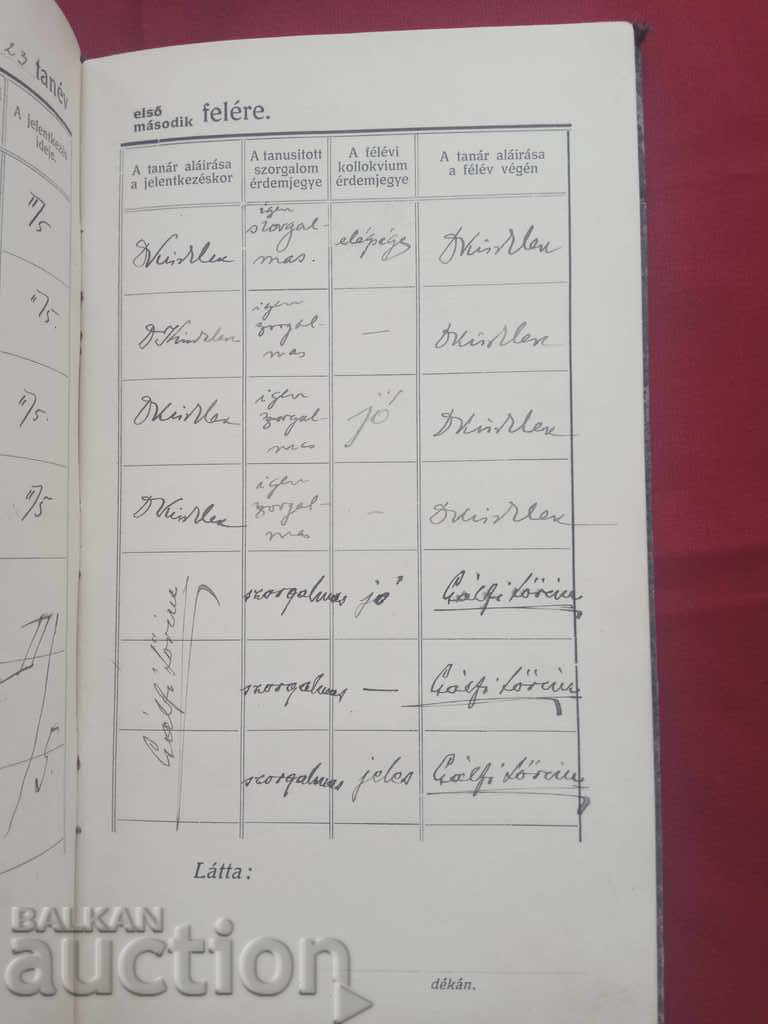 23 tanév
A jelentkezés
ideje.
II/5
II/5.
II/5.
II/5
első
második felére.
A tanár aláirása
a jelentkezéskor
A tanusitott
szorgalom
érdemjegye
A félévi
kollokvium
érdemjegye
A tanár aláirása
a félév végén
igen
szorgal-
mas.
elégséges
igen
szorgal-
mas
—
igen
szorgal-
mas
jó
igen
szorgal-
mas
—
Gálfi Lőrinc
szorgalmas jó Gálfi Lőrinc
szorgalmas — Gálfi Lőrinc
szorgalmas jeles Gálfi Lőrinc
Látta:
dékán.
BALKAN
auction